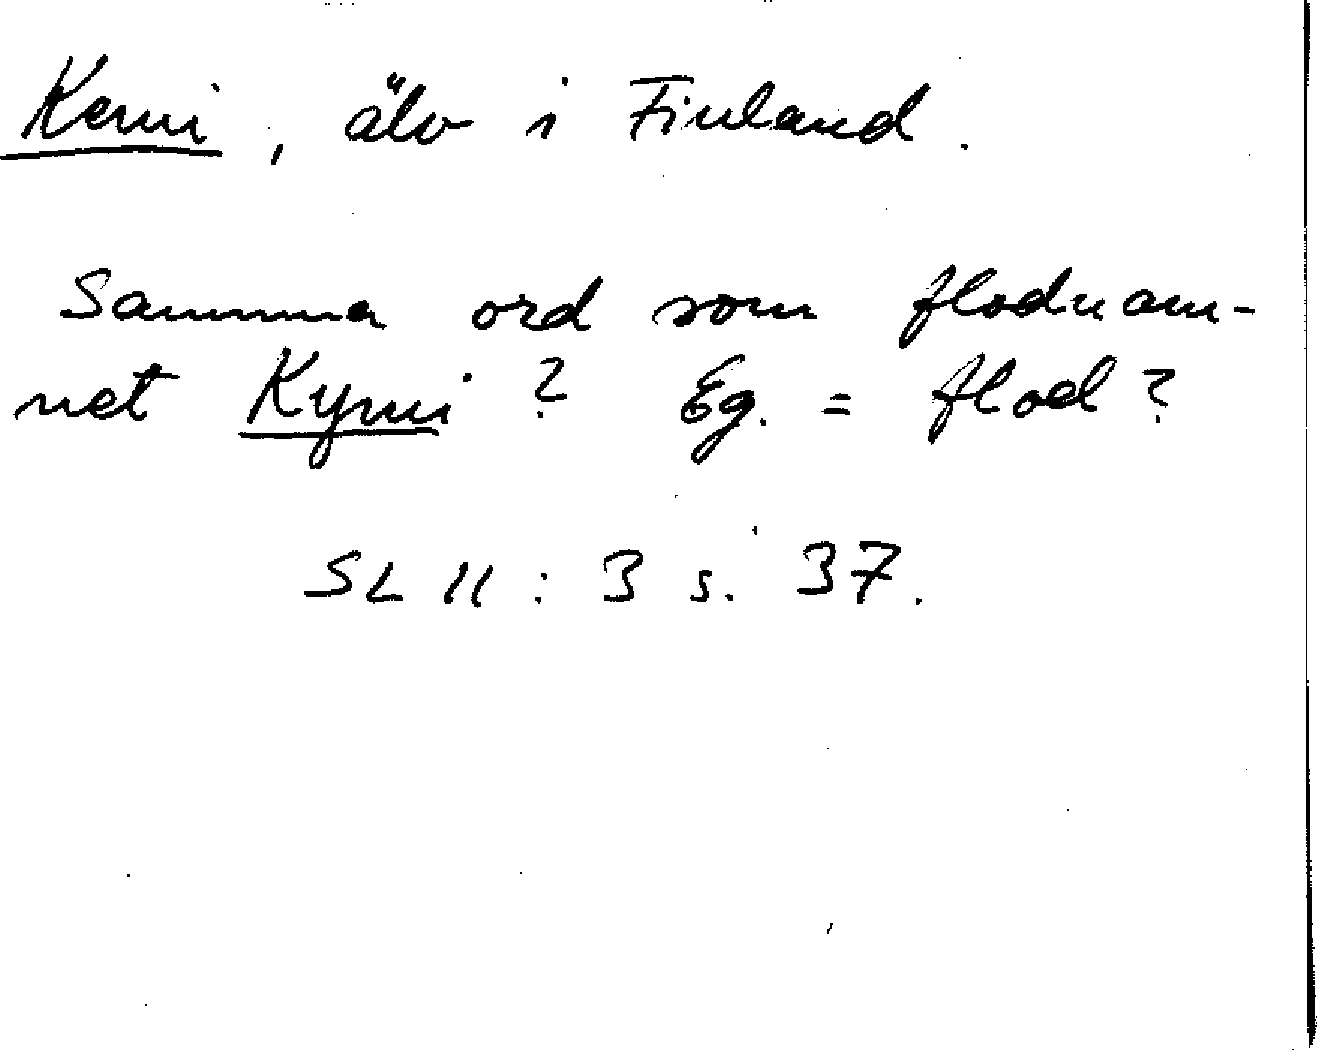 Kemi, älv i Finland.
Samma ord som flodnam-
net Kymi? Eg. = flod?
SL II : 3 s. 37.